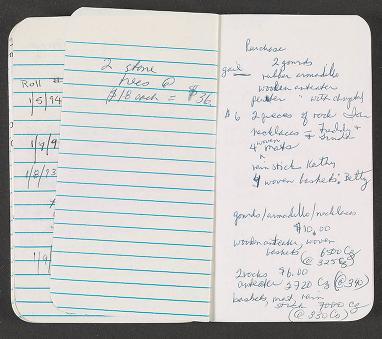 Roll #
1/5/94
1/9/9
1/8/93
1/9/
2 stone
trees @
$18 each = $36
Purchase
2 gourds
gail rubber armadillo
wooden anteater
pewter " with
$6 2 pieces of rock
necklaces =
4 woven mats
rain stick Kathy
4 woven baskets: Betty
gourds/armadillo/necklaces
$10.00
wooden anteater, woven
baskets 6500 C$
(@ 325
2 rocks $6.00
anteater 2720 C$ (@ 340)
baskets, mat, rain
stick 7000 C$
(@ 350